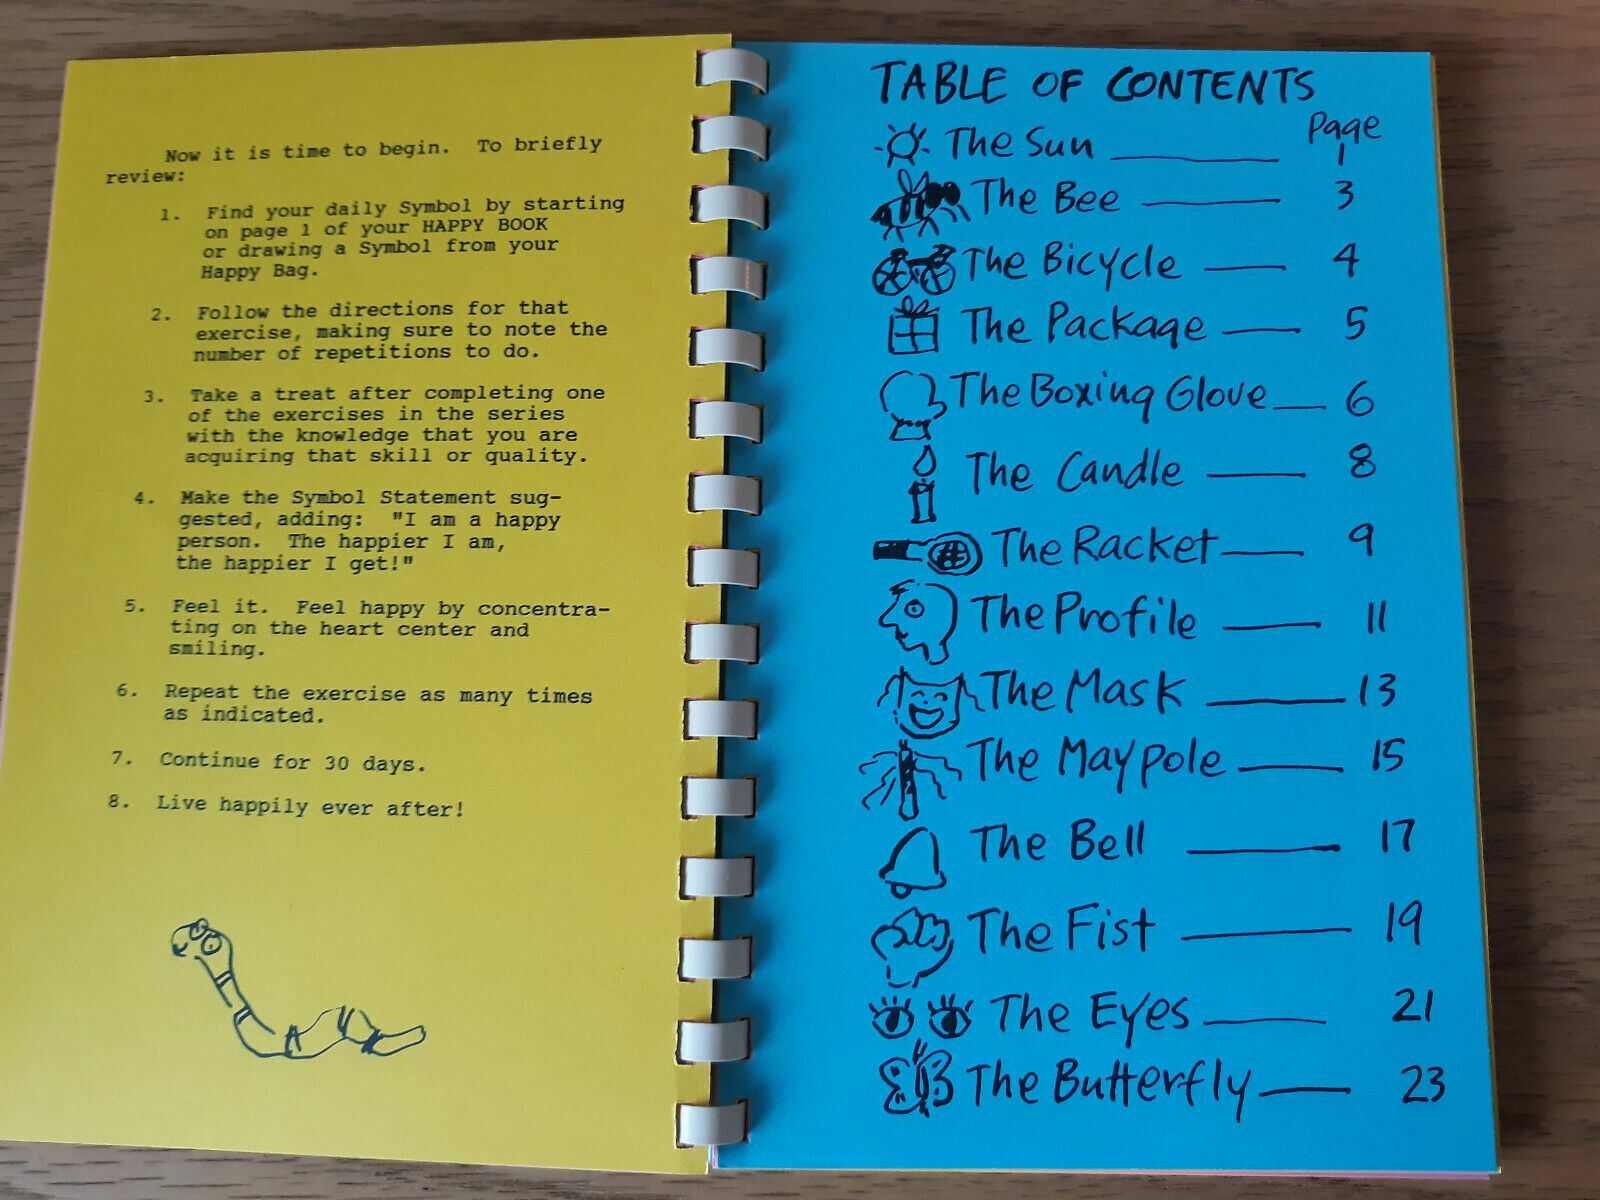 Now it is time to begin. To briefly
review:
1. Find your daily Symbol by starting
on page 1 of your HAPPY BOOK
or drawing a Symbol from your
Happy Bag.
2. Follow the directions for that
exercise, making sure to note the
number of repetitions to do.
3. Take a treat after completing one
of the exercises in the series
with the knowledge that you are
acquiring that skill or quality.
4. Make the Symbol Statement sug-
gested, adding: "I am a happy
person. The happier I am,
the happier I get!"
5. Feel it. Feel happy by concentra-
ting on the heart center and
smiling.
6. Repeat the exercise as many times
as indicated.
7. Continue for 30 days.
8. Live happily ever after!
TABLE OF CONTENTS
Page
The Sun 1
The Bee 3
The Bicycle 4
The Package 5
The Boxing Glove 6
The Candle 8
The Racket 9
The Profile 11
The Mask 13
The Maypole 15
The Bell 17
The Fist 19
The Eyes 21
The Butterfly 23